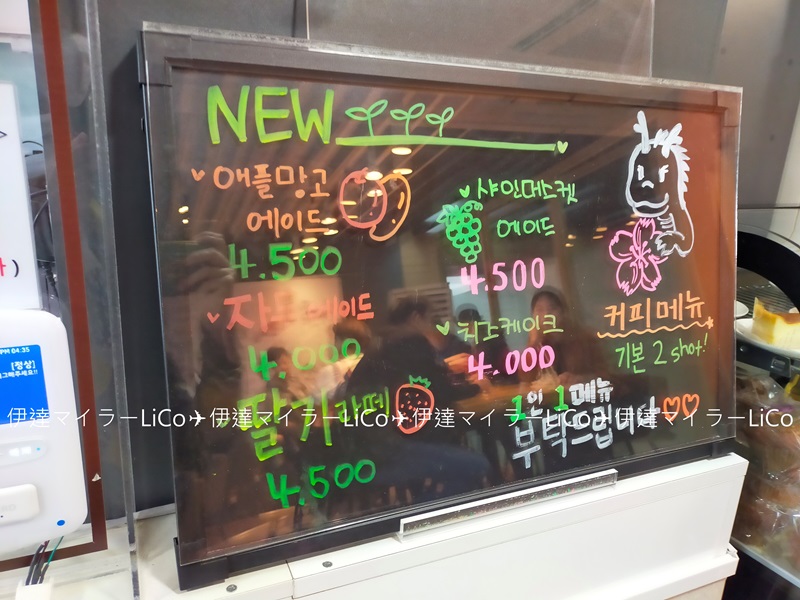 NEW
애플망고
에이드
4.500
자몽에이드
4.000
딸기라떼
4.500
샤인머스켓
에이드
4.500
치즈케이크
4.000
커피메뉴
기본 2 shot!
1인 1메뉴
부탁드립니다
PM 04:35
[정상]
伊達マイラーLiCo✈伊達マイラーLiCo✈伊達マイラーLiCo✈伊達マイラーLiCo